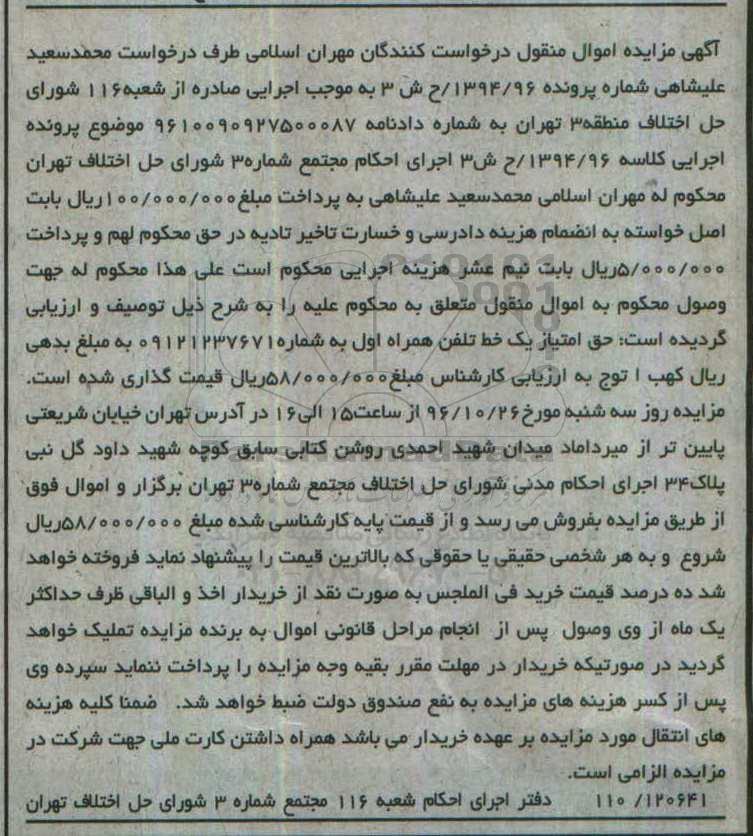 آگهی مزایده اموال منقول درخواست کنندگان مهران اسلامی طرف درخواست محمدسعید
علیشاهی شماره پرونده ۱۳۹۴/۹۶/ح ش ۳ به موجب اجرایی صادره از شعبه۱۱۶ شورای
حل اختلاف منطقه۳ تهران به شماره دادنامه ۹۶۱۰۰۹۰۹۲۷۵۰۰۰۸۷ موضوع پرونده
اجرایی کلاسه ۱۳۹۴/۹۶/ح ش۳ اجرای احکام مجتمع شماره۳ شورای حل اختلاف تهران
محکوم له مهران اسلامی محمدسعید علیشاهی به پرداخت مبلغ۱۰۰/۰۰۰/۰۰۰ریال بابت
اصل خواسته به انضمام هزینه دادرسی و خسارت تاخیر تادیه در حق محکوم لهم و پرداخت
۵/۰۰۰/۰۰۰ریال بابت نیم عشر هزینه اجرایی محکوم است علی هذا محکوم له جهت
وصول محکوم به اموال منقول متعلق به محکوم علیه را به شرح ذیل توصیف و ارزیابی
گردیده است: حق امتیاز یک خط تلفن همراه اول به شماره۰۹۱۲۱۲۳۷۶۷۱ به مبلغ بدهی
ریال کهب ا توج به ارزیابی کارشناس مبلغ۵۸/۰۰۰/۰۰۰ریال قیمت گذاری شده است.
مزایده روز سه شنبه مورخ۹۶/۱۰/۲۶ از ساعت۱۵ الی۱۶ در آدرس تهران خیابان شریعتی
پایین تر از میرداماد میدان شهید احمدی روشن کتابی سابق کوچه شهید داود گل نبی
پلاک۳۴ اجرای احکام مدنی شورای حل اختلاف مجتمع شماره۳ تهران برگزار و اموال فوق
از طریق مزایده بفروش می رسد و از قیمت پایه کارشناسی شده مبلغ ۵۸/۰۰۰/۰۰۰ریال
شروع و به هر شخصی حقیقی یا حقوقی که بالاترین قیمت را پیشنهاد نماید فروخته خواهد
شد ده درصد قیمت خرید فی الملجس به صورت نقد از خریدار اخذ و الباقی ظرف حداکثر
یک ماه از وی وصول پس از انجام مراحل قانونی اموال به برنده مزایده تملیک خواهد
گردید در صورتیکه خریدار در مهلت مقرر بقیه وجه مزایده را پرداخت ننماید سپرده وی
پس از کسر هزینه های مزایده به نفع صندوق دولت ضبط خواهد شد. ضمنا کلیه هزینه
های انتقال مورد مزایده بر عهده خریدار می باشد همراه داشتن کارت ملی جهت شرکت در
مزایده الزامی است.
۱۱۰ /۱۲۰۶۴۱ دفتر اجرای احکام شعبه ۱۱۶ مجتمع شماره ۳ شورای حل اختلاف تهران